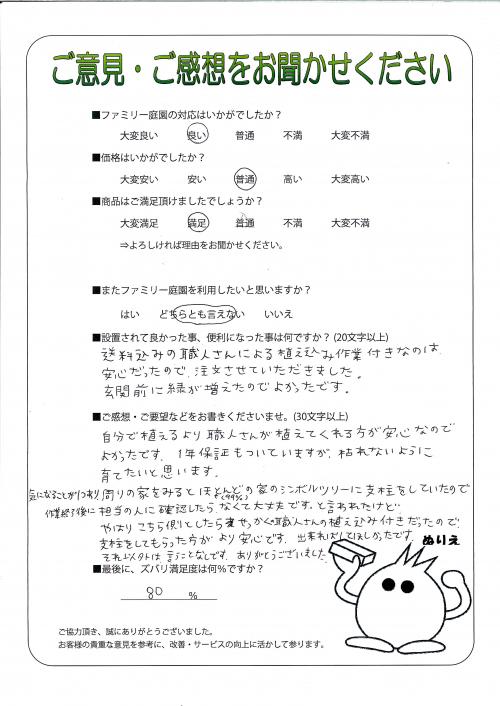 ご意見・ご感想をお聞かせください
■ファミリー庭園の対応はいかがでしたか？
大変良い 良い 普通 不満 大変不満
■価格はいかがでしたか？
大変安い 安い 普通 高い 大変高い
■商品はご満足頂けましたでしょうか？
大変満足 満足 普通 不満 大変不満
⇒よろしければ理由をお聞かせください。
■またファミリー庭園を利用したいと思いますか？
はい どちらとも言えない いいえ
■設置されて良かった事、便利になった事は何ですか？(20文字以上)
送料込みの職人さんによる植え込み作業付きなのは
安心だったので、注文させていただきました。
玄関前に緑が増えたのでよかったです。
■ご感想・ご要望などをお書きくださいませ。(30文字以上)
自分で植えるより職人さんが植えてくれる方が安心なので
よかったです。1年保証もついていますが、枯れないように
育てたいと思います。
気になることが1つあり 周りの家をみるとほとんどの家のシンボルツリーに支柱をしていたので
(99%)
作業終了後に 担当の人に確認したら、なくて大丈夫です。と言われたけど
やはりこちら側としたらせっかく職人さんの植え込み付きだったので、
支柱をしてもらった方がより安心です。出来ればしてほしかったです。
それ以外は言うことなしです。ありがとうございました。
ぬりえ
■最後に、ズバリ満足度は何％ですか？
80 ％
ご協力頂き、誠にありがとうございました。
お客様の貴重な意見を参考に、改善・サービスの向上に活かして参ります。